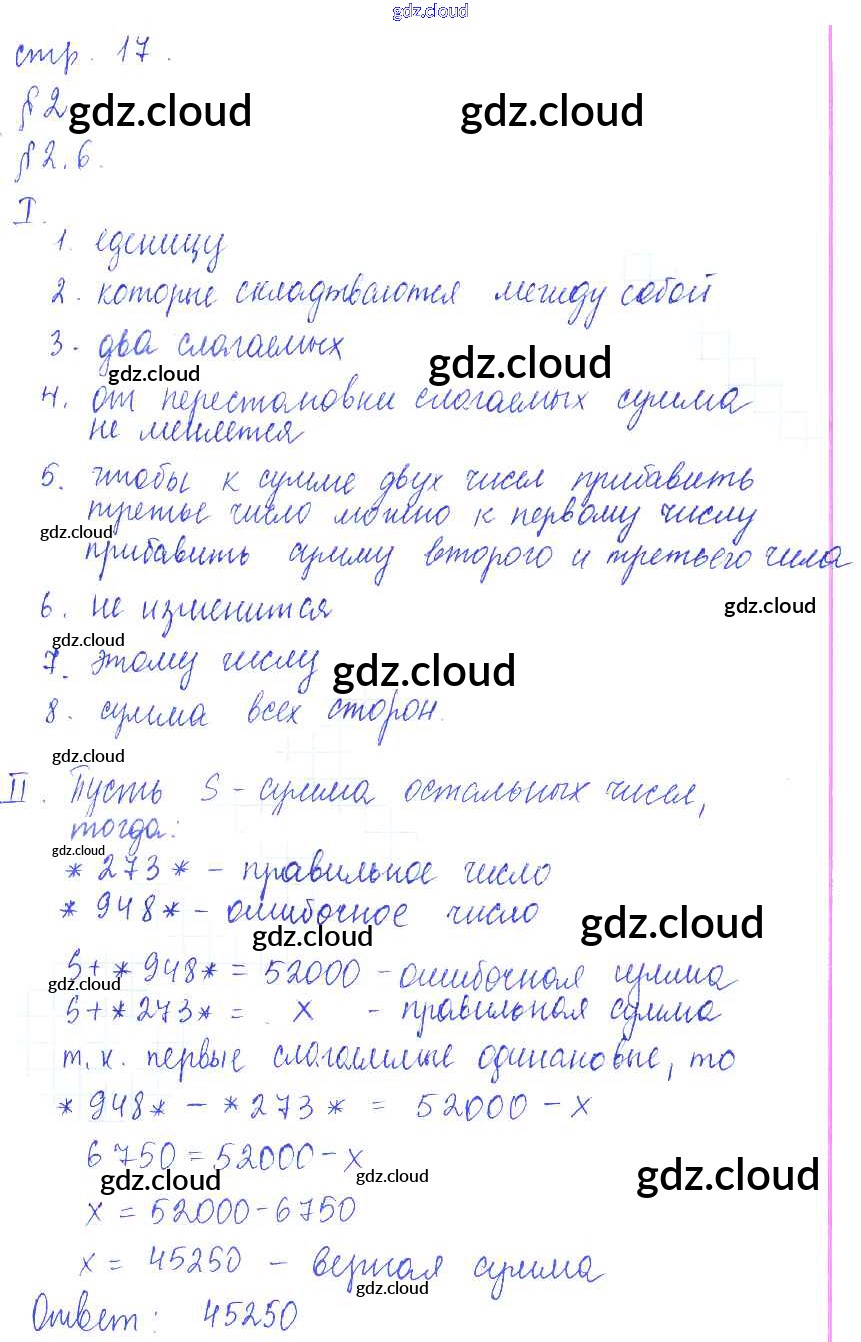 gdz.cloud
стр. 17.
§2 gdz.cloud gdz.cloud
§2.6.
I.
1. еденицу
2. которые складтваются между собой
3. два слагаемых
gdz.cloud gdz.cloud
4. от перестановки слагаемых сумма
не меняется
5. чтобы к сумме двух чисел прибавить
третье число можно к первому числу
gdz.cloud
прибавить сумму второго и третьего чила
6. не изменится gdz.cloud
gdz.cloud
7. этому числу gdz.cloud
8. сумма всех сторон.
gdz.cloud
II. Пусть S - сумма остальных чисел,
тогда:
gdz.cloud
*273* - правильное число
*948* - ошибочное число
gdz.cloud gdz.cloud
S+*948* = 52000 - ошибочная сумма
gdz.cloud
S+*273* = x - правильная сумма
т.к. первые слагаемые одинаковые, то
*948* - *273* = 52000 - x
6750 = 52000 - x
gdz.cloud gdz.cloud gdz.cloud
x = 52000 - 6750
x = 45250 - верная сумма
gdz.cloud
Ответ: 45250